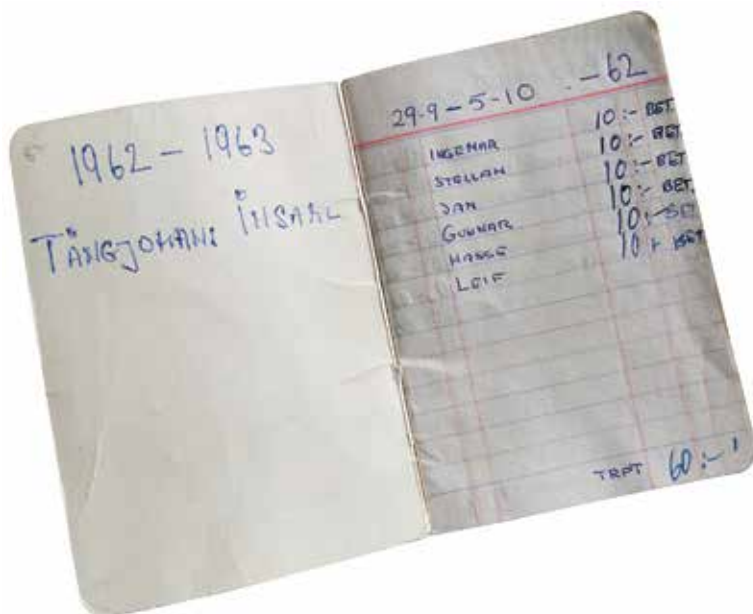 1962 – 1963
29-9 – 5-10 -62
INGEMAR 10:- BET.
STELLAN 10:- BET.
JAN 10:- BET.
GUNNAR 10:- BET.
HASSE 10:- BET.
LEIF 10:- BET
TRPT 60:-